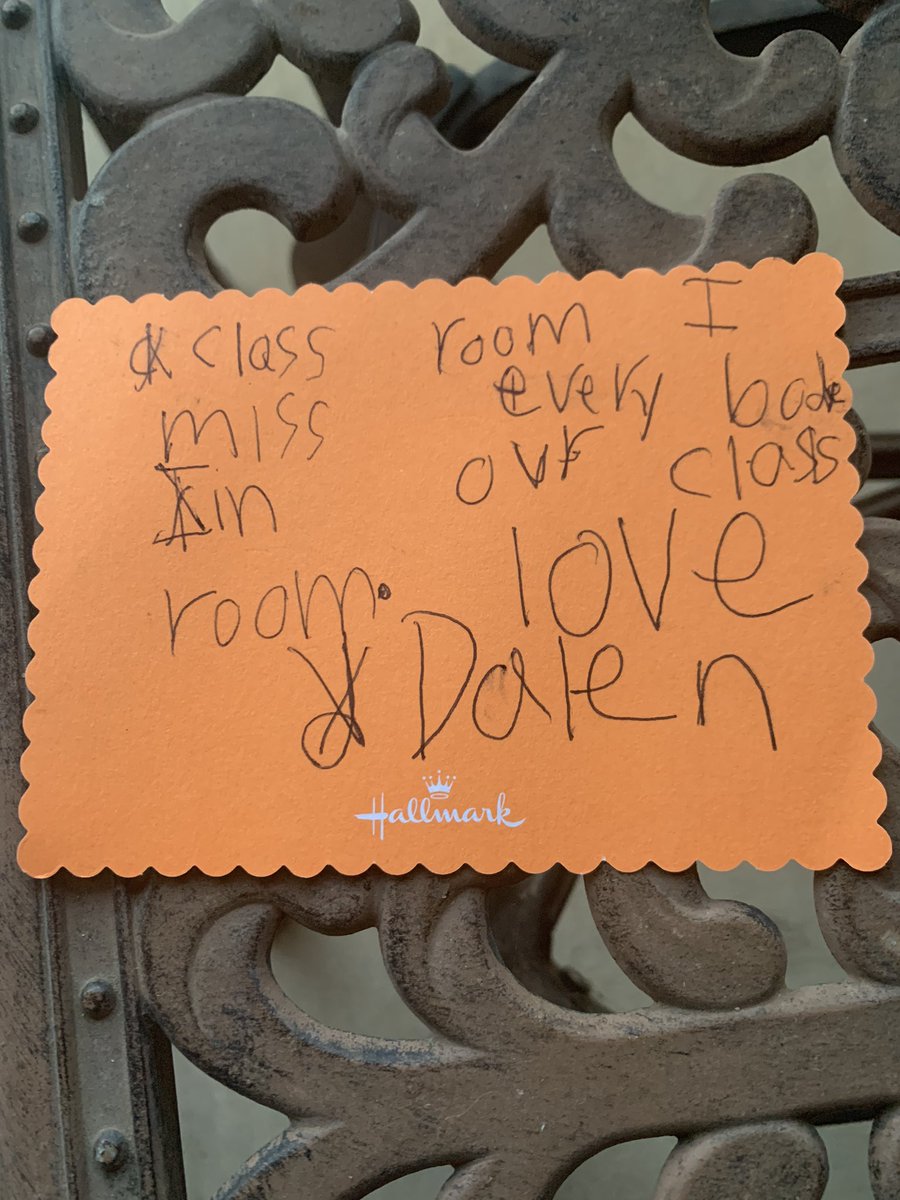 class room I
miss every bode
in our class
room. love
Dalen
Hallmark